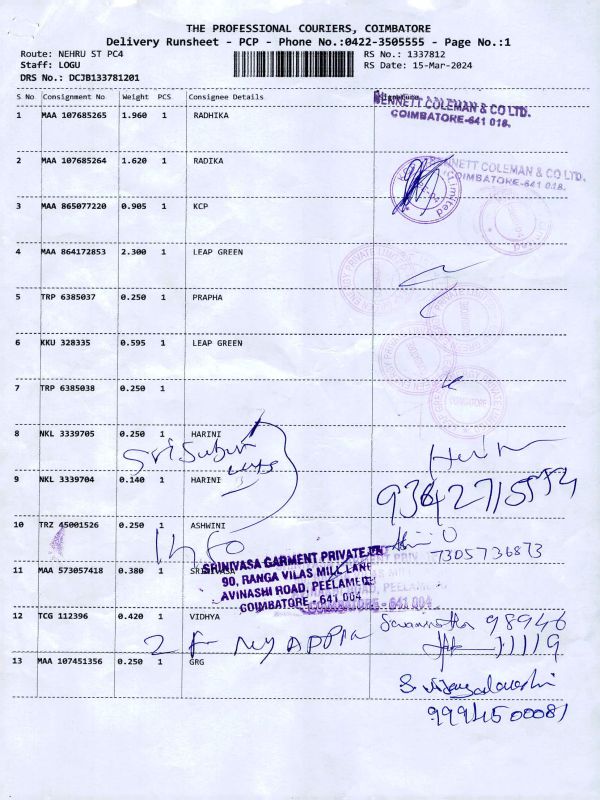 THE PROFESSIONAL COURIERS, COIMBATORE
Delivery Runsheet - PCP - Phone No.:0422-3505555 - Page No.:1
Route: NEHRU ST PC4
Staff: LOGU
DRS No.: DCJB133781201
RS No.: 1337812
RS Date: 15-Mar-2024
S No Consignment No Weight PCS Consignee Details
1 MAA 107685265 1.960 1 RADHIKA
BENNETT COLEMAN & CO LTD.
COIMBATORE-641 018.
2 MAA 107685264 1.620 1 RADIKA
BENNETT COLEMAN & CO LTD.
COIMBATORE-641 018.
3 MAA 865077220 0.905 1 KCP
4 MAA 864172853 2.300 1 LEAP GREEN
5 TRP 6385037 0.250 1 PRAPHA
6 KKU 328335 0.595 1 LEAP GREEN
7 TRP 6385038 0.250 1
8 NKL 3339705 0.250 1 HARINI
9 NKL 3339704 0.140 1 HARINI
9342715554
10 TRZ 45001526 0.250 1 ASHWINI
7305736873
SRINIVASA GARMENT PRIVATE
11 MAA 573057418 0.380 1
90, RANGA VILAS MILL LANE
AVINASHI ROAD, PEELAMEDU
COIMBATORE - 641 004
12 TCG 112396 0.420 1 VIDHYA
98946
11119
13 MAA 107451356 0.250 1 GRG
9994500081